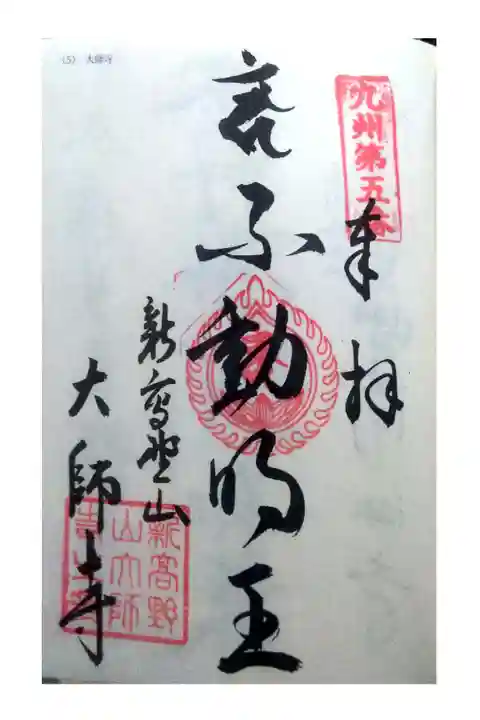 (5) 大師寺
九州第五番
奉拝
不動明王
新高野山
大師寺
新高野
山大師